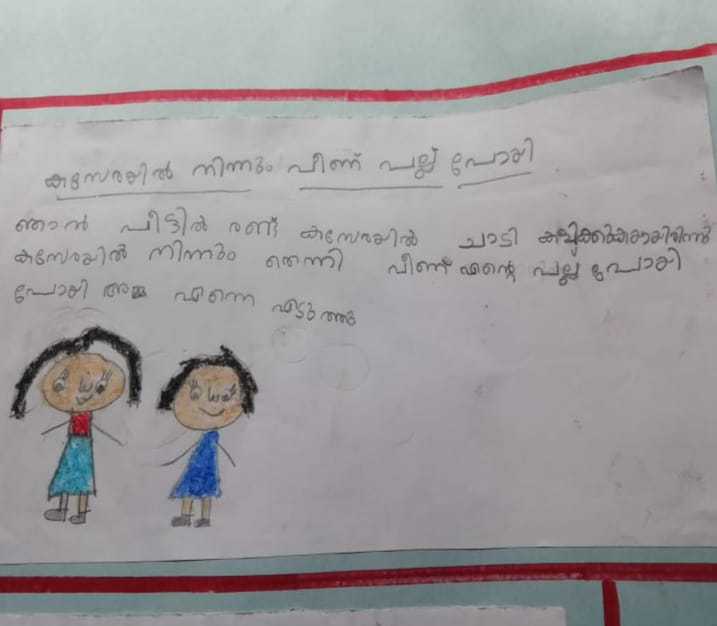 കസേരയിൽ നിന്നും വീണ് പല്ല് പോയി
ഞാൻ വീട്ടിൽ രണ്ട് കസേരയിൽ ചാടി കളിക്കുകയായിരുന്നു
കസേരയിൽ നിന്നും തെന്നി വീണ് എന്റെ പല്ല് പോയി
പോയി അമ്മ എന്നെ എടുത്തു